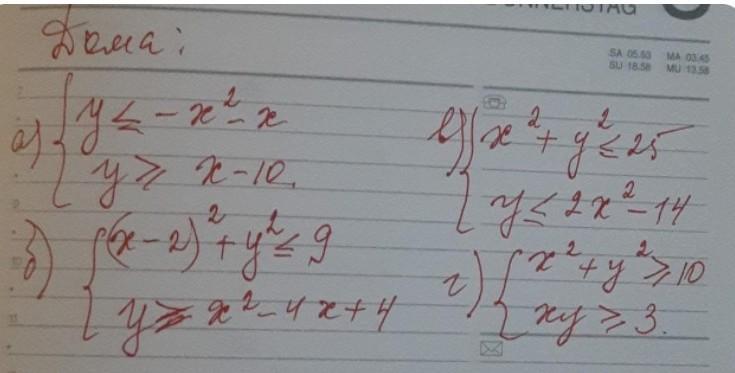 DONNERSTAG
SA 05.53 MA 03.45
SU 18.58 MU 13.58
Дома:
а) { y ≤ -x² - x
y ≥ x - 10.
б) { (x-2)² + y² ≤ 9
y ≥ x² - 4x + 4
в) { x² + y² ≤ 25
y ≤ 2x² - 14
г) { x² + y² ≥ 10
xy ≥ 3.